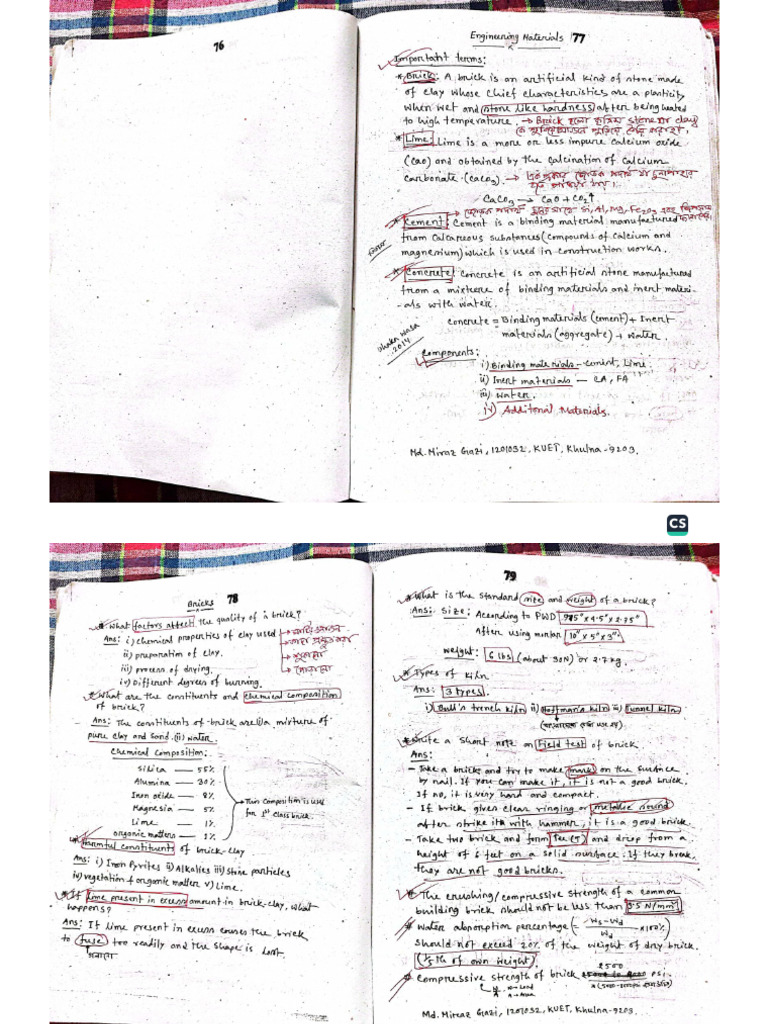 76
Engineering Materials 77
Important terms:
* Brick: A brick is an artificial kind of stone made
of clay whose chief characteristics are a plasticity
when wet and stone like hardness after being heated
to high temperature. → Brick হলো কৃত্রিম stone যা clay
* Lime: Lime is a more or less impure calcium oxide
(CaO) and obtained by the calcination of calcium
carbonate (CaCO3). →
CaCO3 → CaO + CO2↑
Si, Al, Mg, Fe2O3
* Cement: Cement is a binding material manufactured
from calcareous substances (compounds of calcium and
magnesium) which is used in construction works.
* Concrete: Concrete is an artificial stone manufactured
from a mixture of binding materials and inert materi-
als with water.
Concrete = Binding materials (cement) + Inert
materials (aggregate) + water.
Dhaka Wasa
2014
Components:
i) Binding materials - cement, Lime.
ii) Inert materials — CA, FA
iii) water.
iv) Additional Materials.
Md. Miraz Gazi, 1201032, KUET, Khulna-9203.
CS
Bricks 78
* What factors affect the quality of a brick?
Ans: i) chemical properties of clay used
ii) preparation of clay.
iii) process of drying.
iv) Different degrees of burning.
* What are the constituents and chemical composition
of brick?
Ans: The constituents of brick are (i) a mixture of
pure clay and sand. (ii) water.
Chemical Composition:
Silica — 55%
Alumina — 30%
Iron oxide — 8%
Magnesia — 5%
Lime — 1%
organic matters — 1%
→ This composition is used
for 1st class brick.
* Harmful constituents of brick-clay
Ans: i) Iron Pyrites ii) Alkalies iii) Stone particles
iv) vegetation & organic matter v) Lime.
* If lime present in excess amount in brick-clay, what
happens?
Ans: If lime present in excess causes the brick
to fuse too readily and the shape is lost.
গলানো
79
* What is the standard size and weight of a brick?
Ans: Size: According to PWD 9.75" x 4.5" x 2.75"
After using mortar 10" x 5" x 3"
weight: 6 lbs (about 30N) or 2.7 kg.
* Types of kiln
Ans: 3 types.
i) Bull's trench kiln ii) Hoffman's kiln iii) Tunnel kiln
* Write a short note on Field test of brick.
Ans:
- Take a brick and try to make mark on the surface
by nail. If you can make it, it is not a good brick.
If no, it is very hard and compact.
- If brick gives clear ringing or metallic sound
after strike it with hammer, it is a good brick.
- Take two brick and form Tee (T) and drop from a
height of 6 feet on a solid surface. If they break,
they are not good bricks.
* The crushing/compressive strength of a common
building brick should not be less than 3.5 N/mm²
* Water absorption percentage (= Ws-Wd / Wd x 100%)
should not exceed 20% of the weight of dry brick.
(1/5th of own weight).
2500
* Compressive strength of brick psi.
W → Load
A → Area
Md. Miraz Gazi, 1201032, KUET, Khulna-9203.